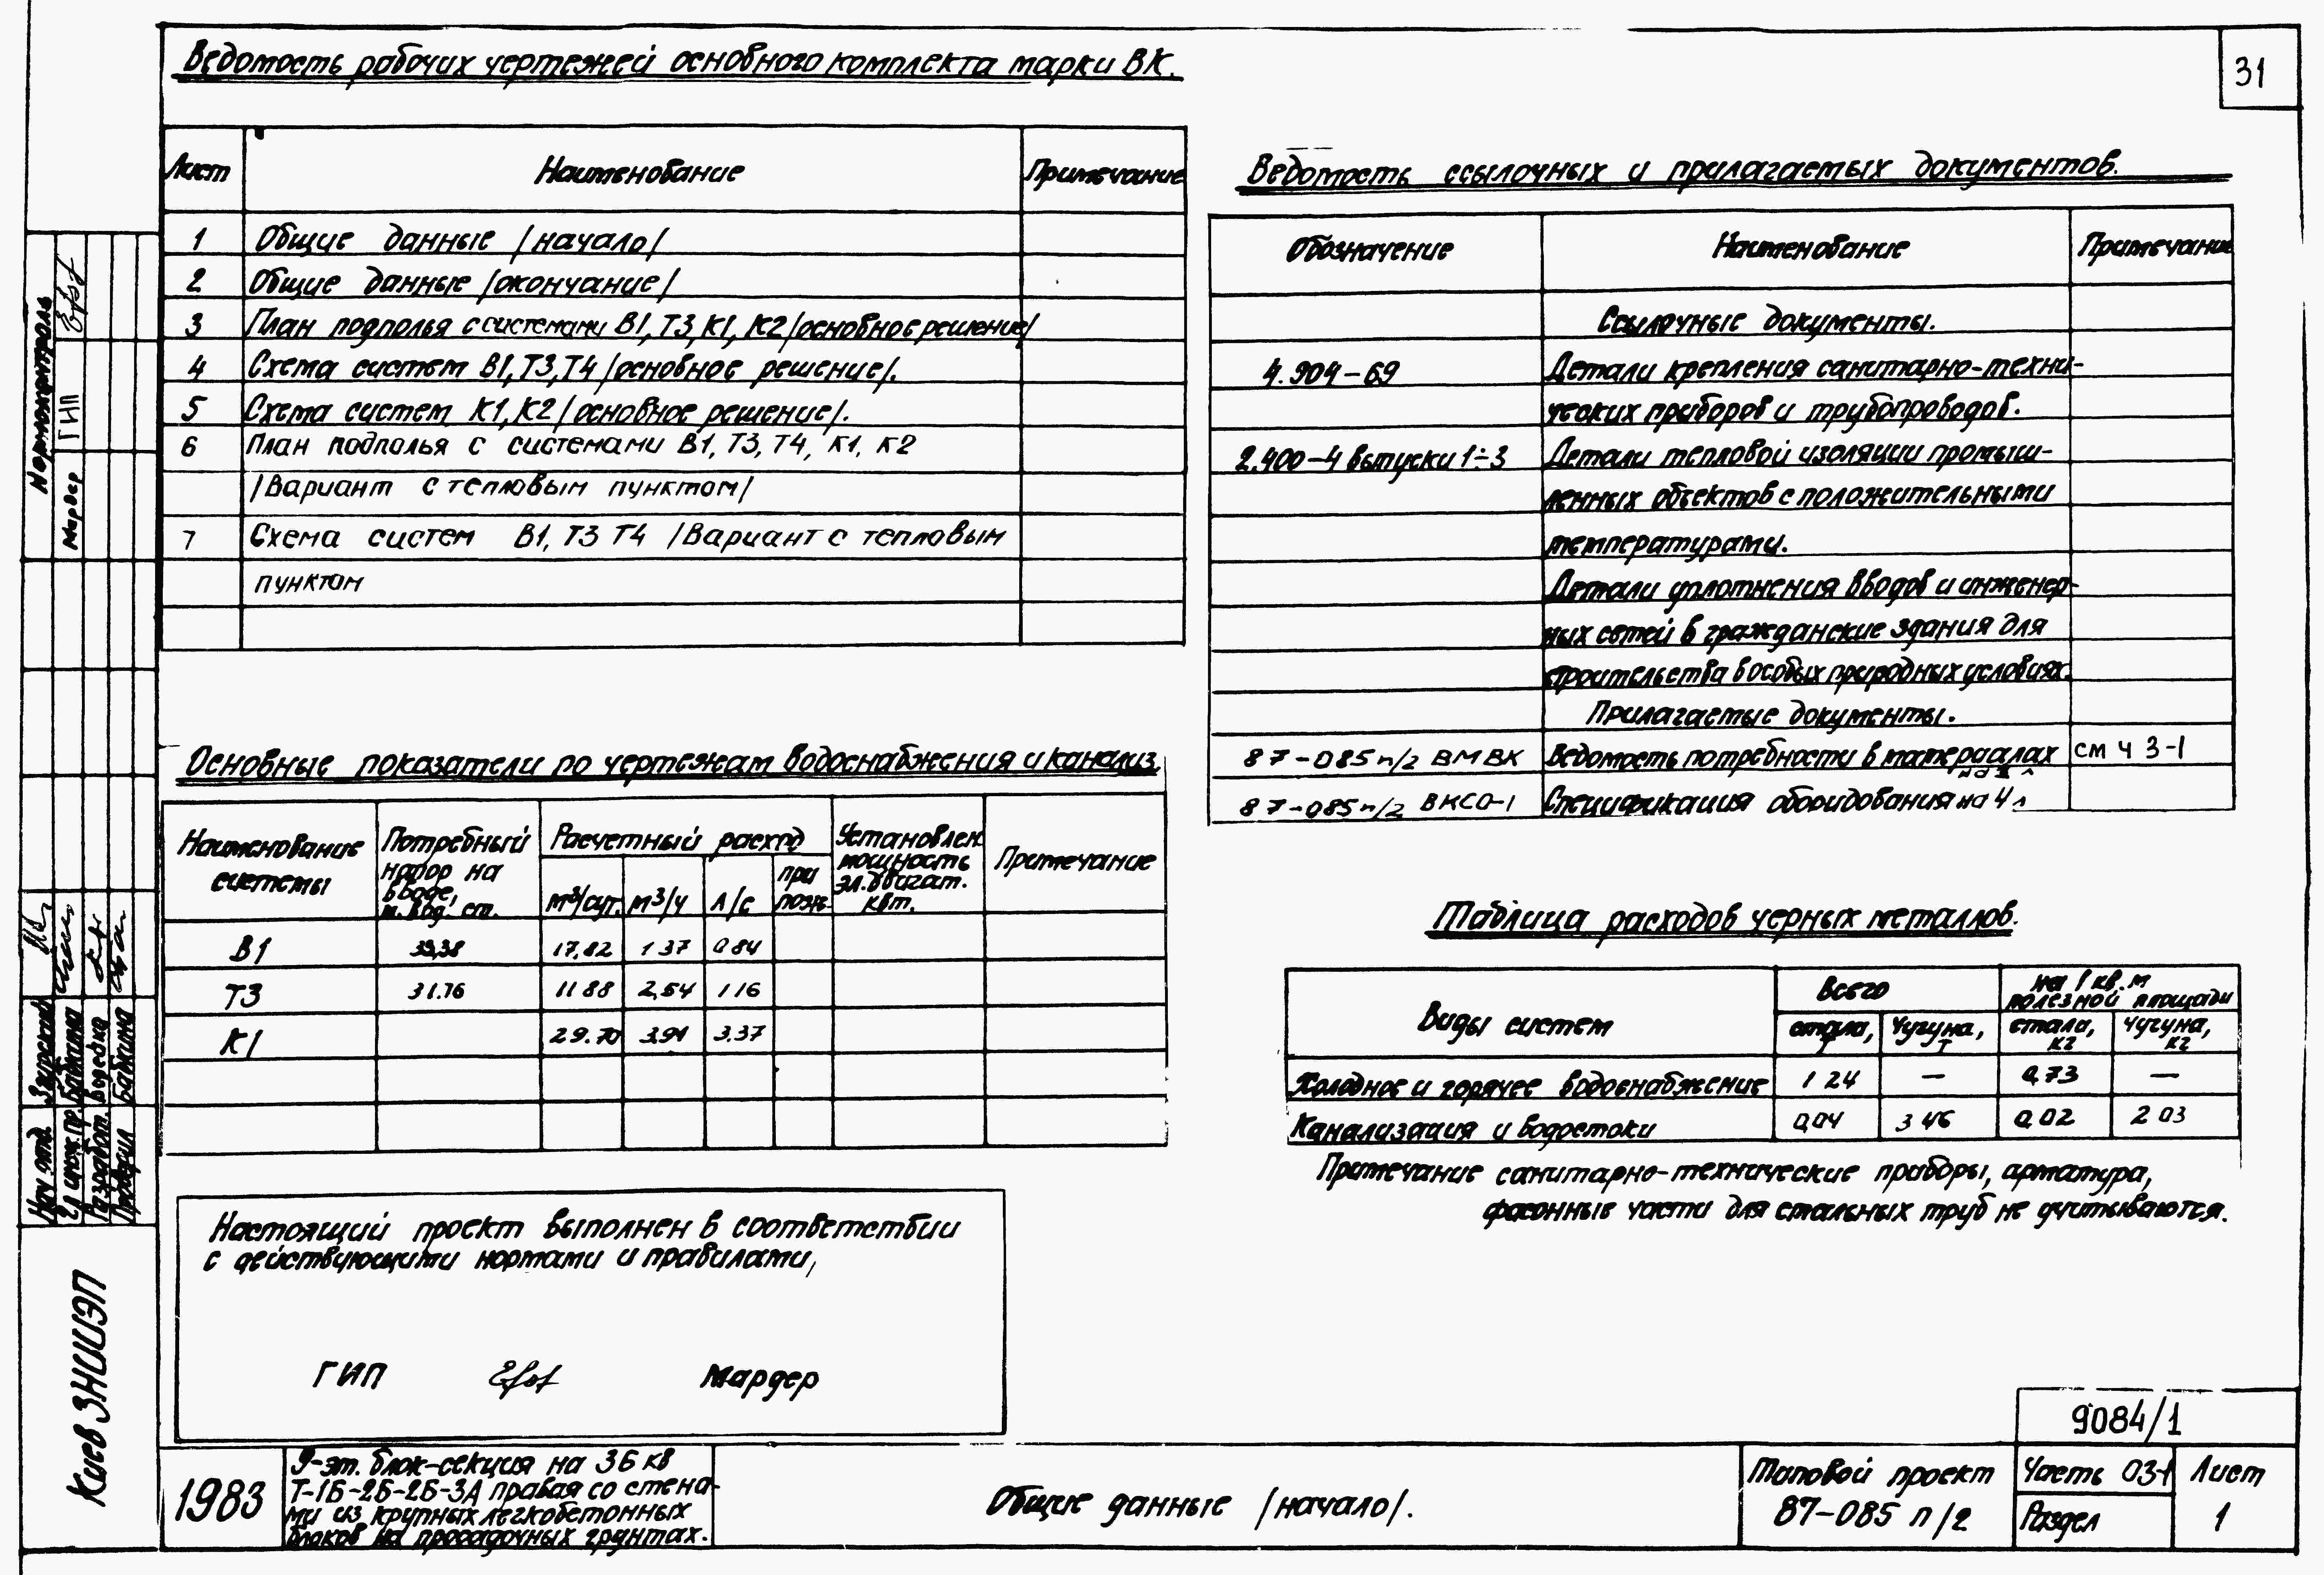 31
Ведомость рабочих чертежей основного комплекта марки ВК.
Лист Наименование Примечание
1 Общие данные /начало/
2 Общие данные /окончание/
3 План подполья с системами В1, Т3, К1, К2 /основное решение/
4 Схема систем В1, Т3, Т4 /основное решение/.
5 Схема систем К1, К2 /основное решение/.
6 План подполья с системами В1, Т3, Т4, К1, К2
/Вариант с тепловым пунктом/
7 Схема систем В1, Т3 Т4 /Вариант с тепловым
пунктом
Ведомость ссылочных и прилагаемых документов.
Обозначение Наименование Примечание
Ссылочные документы.
4.904-69 Детали крепления санитарно-техни-
ческих приборов и трубопроводов.
2.400-4 выпуски 1÷3 Детали тепловой изоляции промыш-
ленных объектов с положительными
температурами.
Детали уплотнения вводов и инженер-
ных сетей в гражданские здания для
строительства в особых природных условиях.
Прилагаемые документы.
87-085 п/2 ВМ ВК Ведомость потребности в материалах см ч 3-1
87-085 п/2 ВКСО-1 Спецификация оборудования на 4 л
Основные показатели по чертежам водоснабжения и канализ.
Наименование системы
Потребный напор на вводе, м. вод. ст.
Расчетный расход
м³/сут. м³/ч л/с при пож.
Установлен. мощность эл.двигат. квт.
Примечание
В1 39,38 17,82 1 37 0 84
Т3 31.76 11 88 2,54 1 16
К1 29.70 3.91 3.37
Таблица расходов черных металлов.
Виды систем
Всего
на 1 кв. м полезной площади
стали, т чугуна, т стали, кг чугуна, кг
Холодное и горячее водоснабжение 1 24 — 0,73 —
Канализация и водостоки 0,04 3 46 0,02 2 03
Примечание санитарно-технические приборы, арматура,
фасонные части для стальных труб не учитываются.
Настоящий проект выполнен в соответствии
с действующими нормами и правилами,
ГИП Мардер
Нормоконтроль
ГИП
Мардер
Нач отд.
Гл инж.пр. Бабкина
Разработ.
Проверил Бабкина
Киев ЗНИИЭП
1983
9-эт. блок-секция на 36 кв
Т-1Б-2Б-2Б-3А правая со стена-
ми из крупных легкобетонных
блоков на просадочных грунтах.
Общие данные /начало/.
9084/1
Типовой проект
87-085 п/2
Часть 03-1
Раздел
Лист
1